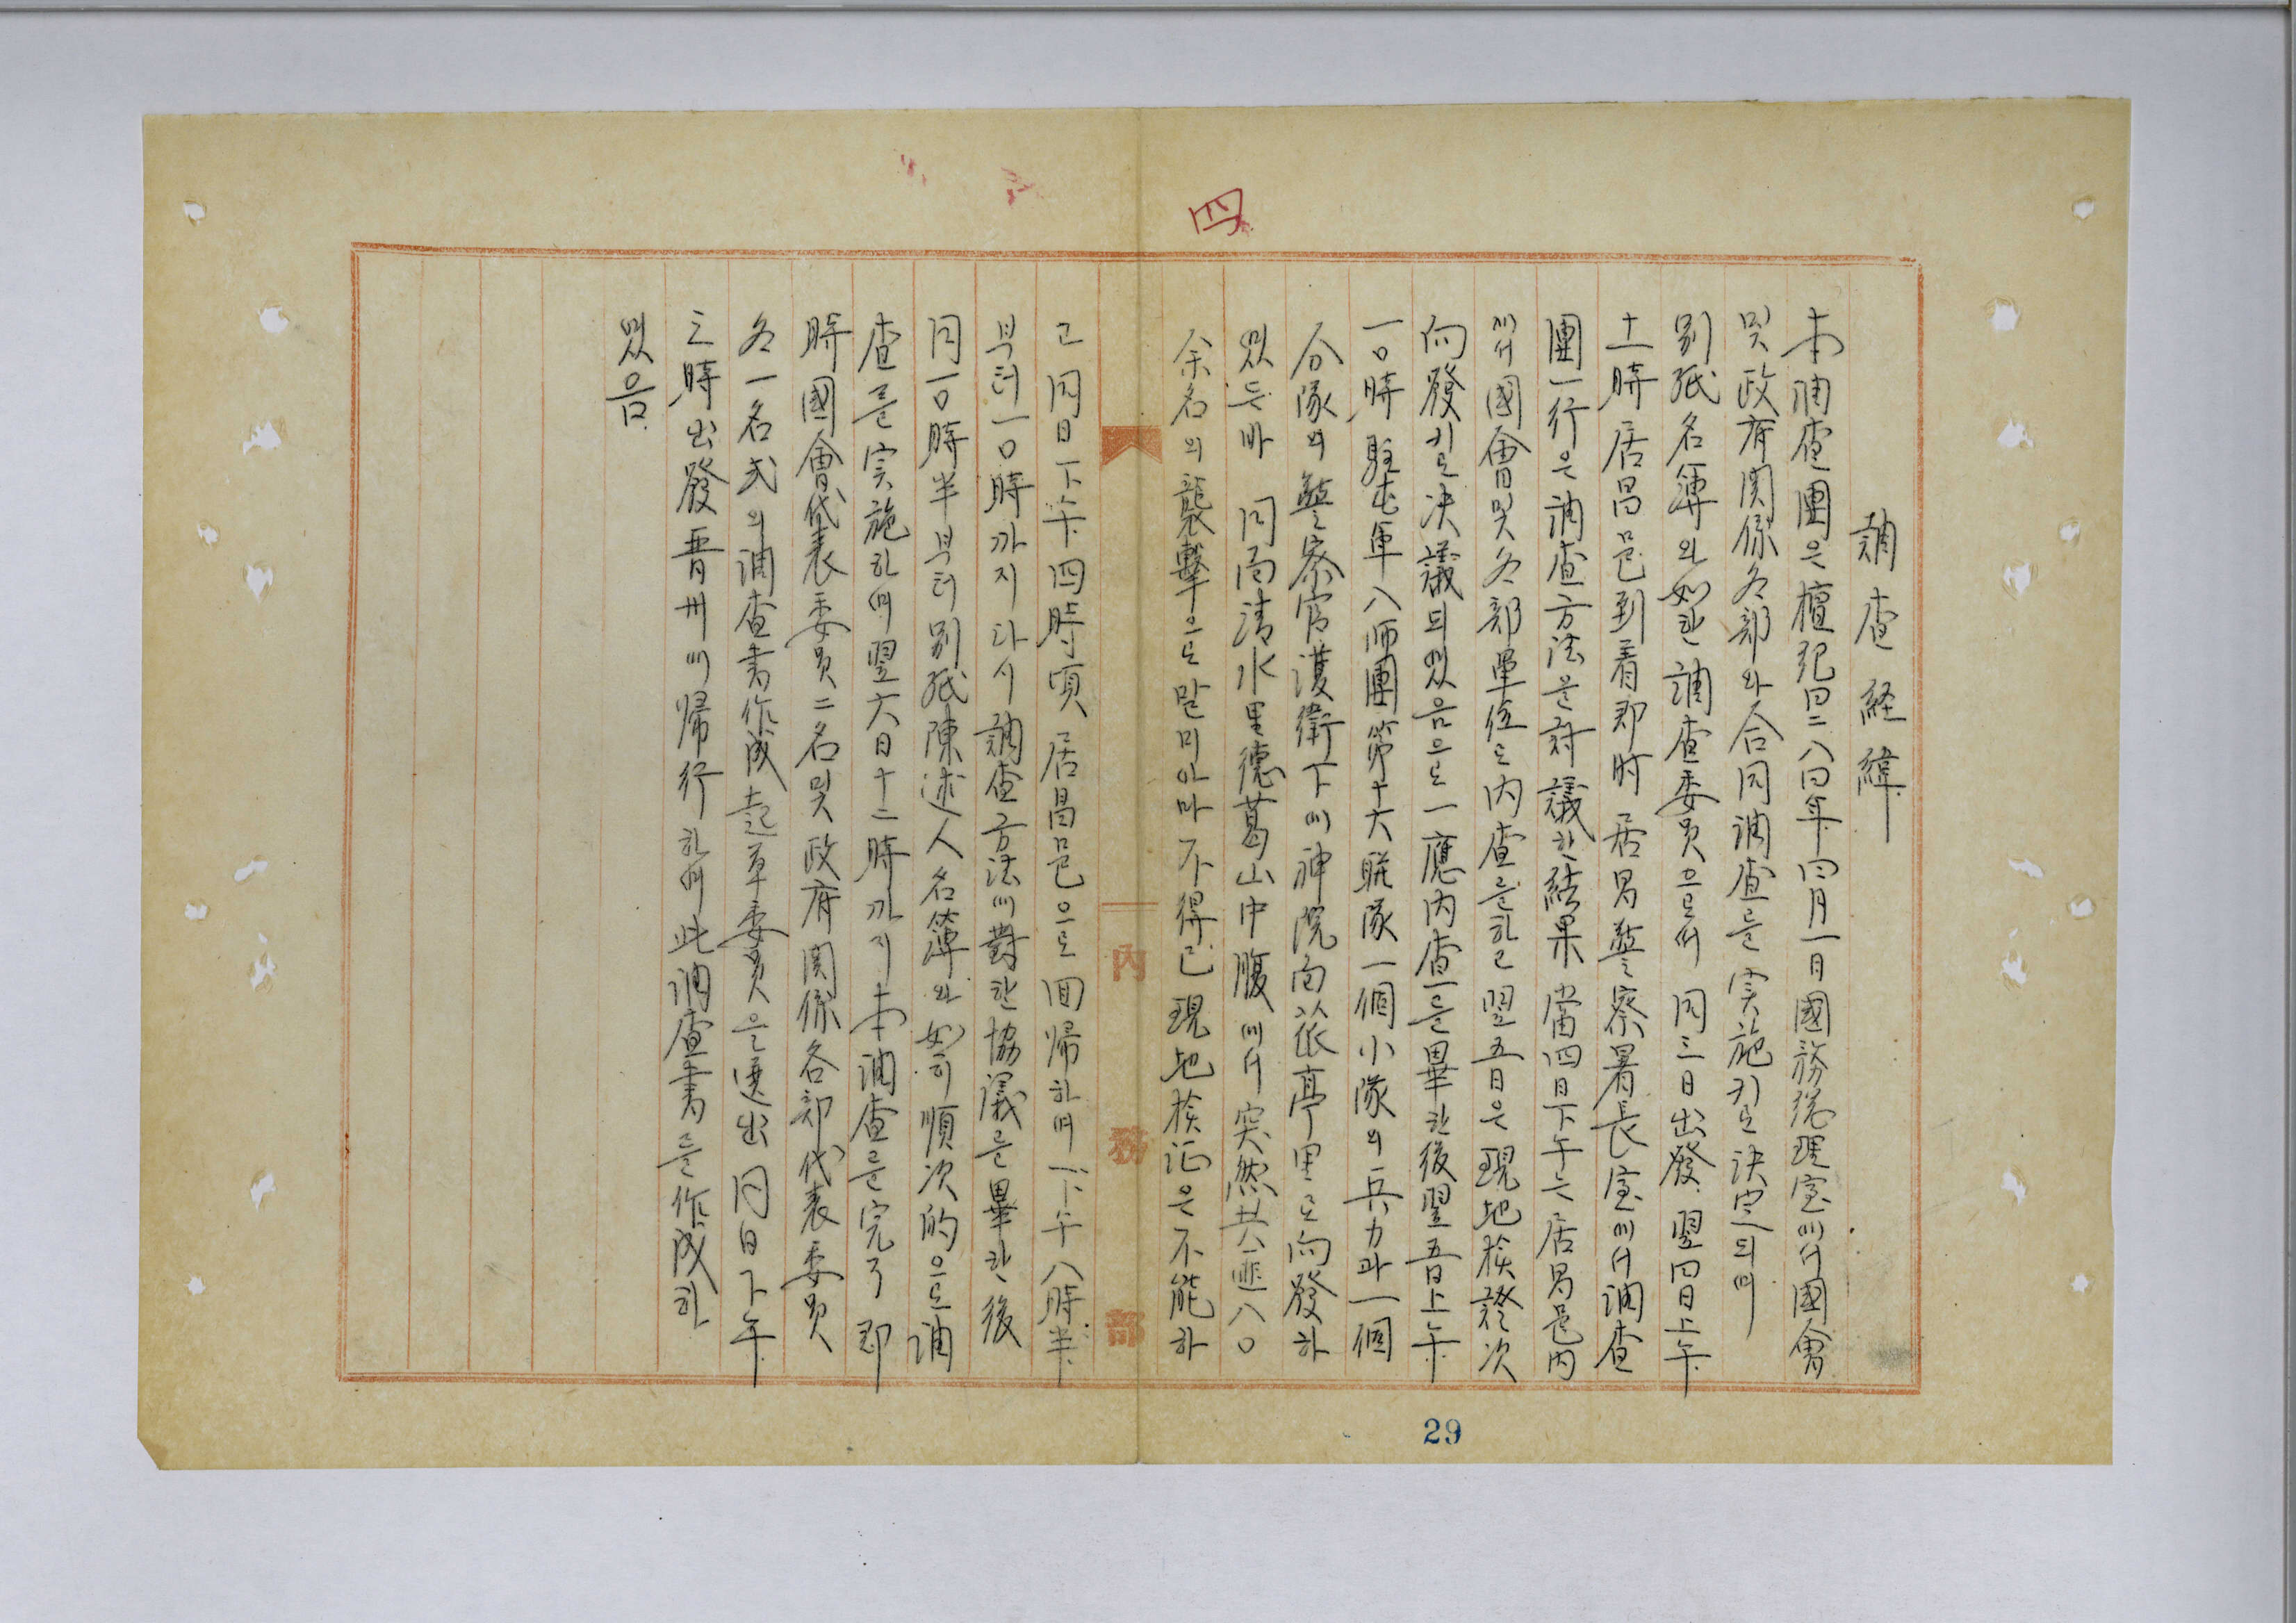 四
調査経緯
本調査團은 檀紀四二八四年 四月一日 國務総理室에서 國會
및 政府 関係 各部와 合同調査를 実施키로 決定되여
別紙名簿와 如한 調査委員으로서 同三日 出發 翌四日 上午
十一時 居昌邑 到着 即時 居昌警察署長室에서 調査
團一行은 調査方法을 討議한 結果 當四日 下午는 居昌邑内
에서 國會 및 各部單位로 内査를 하고 翌五日은 現地検證次
向發키로 決議되였음으로 一應 内査를 畢한 後 翌五日 上午
一〇時 駐屯軍 八師團 第十六聯隊 一個小隊의 兵力과 一個
分隊의 警察官 護衛下에 神院面 莜亭里로 向發하
였든바 同面 清水里 德葛山 中腹에서 突然 共匪 八〇
余名의 襲撃으로 말미아마 不得已 現地検证은 不能하
고 同日 下午 四時頃 居昌邑으로 回帰하여 下午 八時半
부터 一〇時까지 다시 調査方法에 對한 協議를 畢한 後
同 一〇時半부터 別紙 陳述人 名簿와 如히 順次的으로 調
査를 実施하여 翌六日 十二時까지 本調査를 完了 即
時 國會代表委員 二名 및 政府 関係 各部 代表委員
各一名式의 調査書作成 起草委員을 選出 同日 下午
三時 出發 晋州에 帰行하여 此 調査書를 作成하
였음
内務部
29